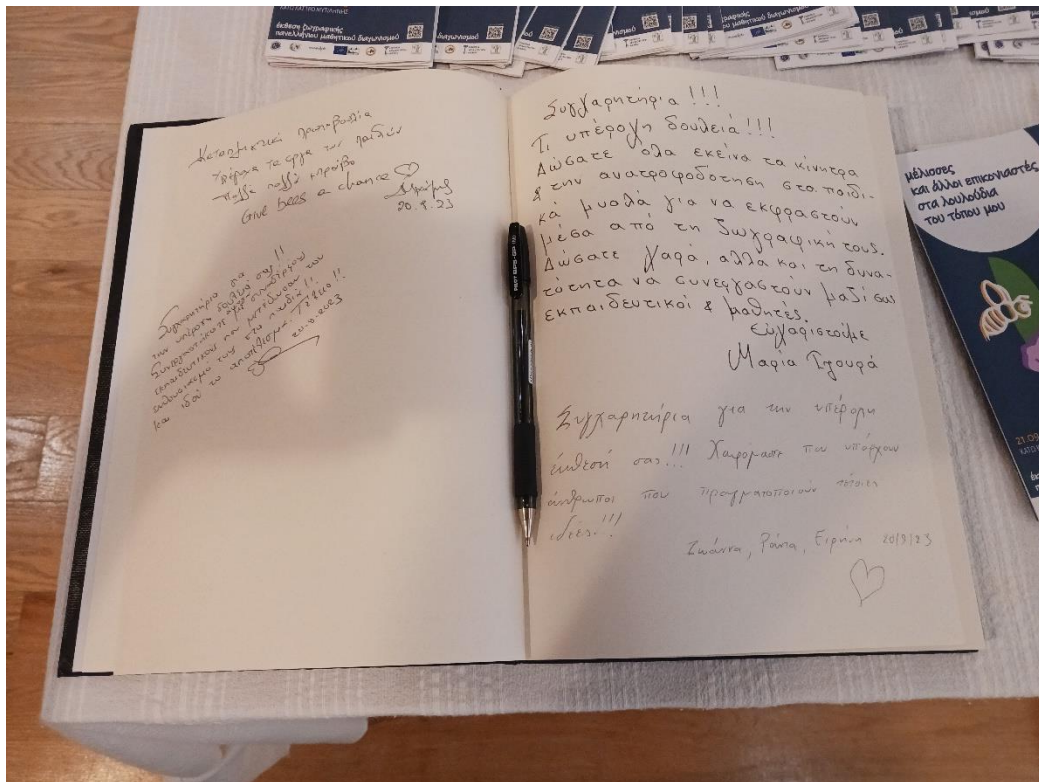 Καταπληκτική πρωτοβουλία
Υπέροχα τα έργα των παιδιών
πολλά πολλά μπράβο
Give bees a chance ♡
20.9.23
Συγχαρητήρια σας!!
την υπέροχη δουλειά
εκπαιδευτικούς που μετέδωσαν τον
ενθουσιασμό τους στα παιδιά!!
και ιδού το αποτέλεσμα. Τέλειο!!
20-9-2023
Συγχαρητήρια!!!
Τι υπέροχη δουλειά!!!
Δώσατε όλα εκείνα τα κίνητρα
& την ανατροφοδότηση στα παιδι-
κά μυαλά για να εκφραστούν
μέσα από τη ζωγραφική τους.
Δώσατε χαρά, αλλά και τη δυνα-
τότητα να συνεργαστούν μαζί σας
εκπαιδευτικοί & μαθητές.
Ευχαριστούμε
Μαρία
Συγχαρητήρια για την υπέροχη
έκθεσή σας!!! Χαιρόμαστε που υπάρχουν
άνθρωποι που πραγματοποιούν τέτοιες
ιδέες!!!
Ιωάννα, Ράνια, Ειρήνη 20/9/23
μέλισσες
και άλλοι επικονιαστές
στα λουλούδια
του τόπου μου
21.09